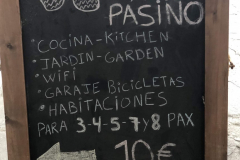 PASINO
*COCINA-KITCHEN
*JARDIN-GARDEN
*WIFI
*GARAJE BICICLETAS
*HABITACIONES
PARA 3-4-5-7 y 8 PAX
10€